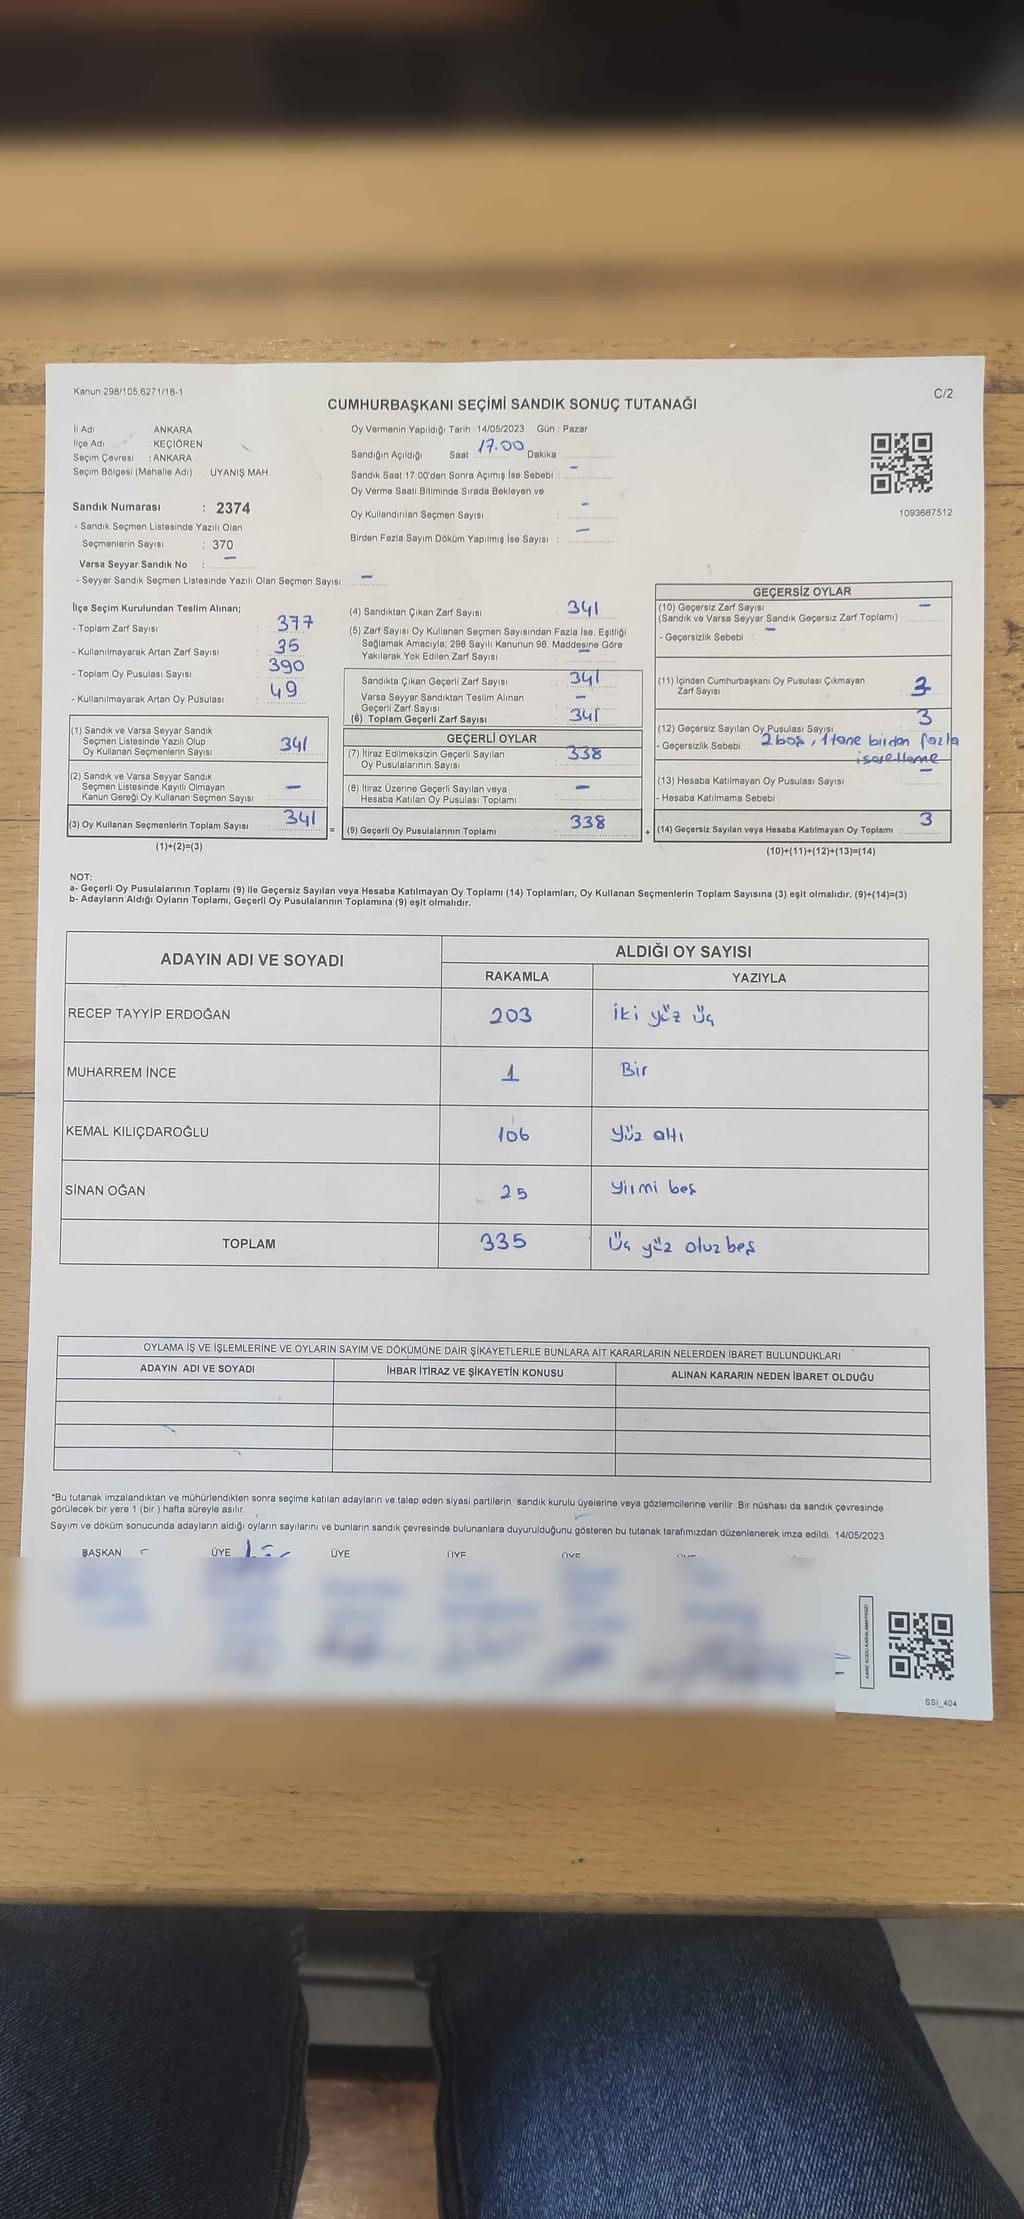 Kanun 298/105,6271/18-1
C/2
CUMHURBAŞKANI SEÇİMİ SANDIK SONUÇ TUTANAĞI
İl Adı ANKARA
İlçe Adı : KEÇİÖREN
Seçim Çevresi : ANKARA
Seçim Bölgesi (Mahalle Adı) : UYANIŞ MAH.
Oy Vermenin Yapıldığı Tarih : 14/05/2023 Gün : Pazar
Sandığın Açıldığı Saat 17.00 Dakika :
Sandık Saat 17:00'den Sonra Açımış İse Sebebi : -
Oy Verme Saati Bitiminde Sırada Bekleyen ve
Oy Kullandırılan Seçmen Sayısı : -
Birden Fazla Sayım Döküm Yapılmış İse Sayısı : -
1093687512
Sandık Numarası : 2374
- Sandık Seçmen Listesinde Yazılı Olan
Seçmenlerin Sayısı : 370
Varsa Seyyar Sandık No : -
- Seyyar Sandık Seçmen Listesinde Yazılı Olan Seçmen Sayısı: -
İlçe Seçim Kurulundan Teslim Alınan;
- Toplam Zarf Sayısı : 377
- Kullanılmayarak Artan Zarf Sayısı : 35
- Toplam Oy Pusulası Sayısı : 390
- Kullanılmayarak Artan Oy Pusulası : 49
(1) Sandık ve Varsa Seyyar Sandık
Seçmen Listesinde Yazılı Olup
Oy Kullanan Seçmenlerin Sayısı : 341
(2) Sandık ve Varsa Seyyar Sandık
Seçmen Listesinde Kayıtlı Olmayan
Kanun Gereği Oy Kullanan Seçmen Sayısı : -
(3) Oy Kullanan Seçmenlerin Toplam Sayısı : 341
(1)+(2)=(3)
(4) Sandıktan Çıkan Zarf Sayısı : 341
(5) Zarf Sayısı Oy Kullanan Seçmen Sayısından Fazla İse, Eşitliği
Sağlamak Amacıyla; 298 Sayılı Kanunun 98. Maddesine Göre
Yakılarak Yok Edilen Zarf Sayısı : -
Sandıkta Çıkan Geçerli Zarf Sayısı : 341
Varsa Seyyar Sandıktan Teslim Alınan
Geçerli Zarf Sayısı : -
(6) Toplam Geçerli Zarf Sayısı : 341
GEÇERLİ OYLAR
(7) İtiraz Edilmeksizin Geçerli Sayılan
Oy Pusulalarının Sayısı : 338
(8) İtiraz Üzerine Geçerli Sayılan veya
Hesaba Katılan Oy Pusulası Toplamı : -
= (9) Geçerli Oy Pusulalarının Toplamı : 338
GEÇERSİZ OYLAR
(10) Geçersiz Zarf Sayısı -
(Sandık ve Varsa Seyyar Sandık Geçersiz Zarf Toplamı)
- Geçersizlik Sebebi : -
(11) İçinden Cumhurbaşkanı Oy Pusulası Çıkmayan
Zarf Sayısı
(12) Geçersiz Sayılan Oy Pusulası Sayısı : 3
- Geçersizlik Sebebi : 2 boş, 1 tane birden fazla
işaretleme
(13) Hesaba Katılmayan Oy Pusulası Sayısı : -
- Hesaba Katılmama Sebebi :
+ (14) Geçersiz Sayılan veya Hesaba Katılmayan Oy Toplamı : 3
(10)+(11)+(12)+(13)=(14)
NOT:
a- Geçerli Oy Pusulalarının Toplamı (9) ile Geçersiz Sayılan veya Hesaba Katılmayan Oy Toplamı (14) Toplamları, Oy Kullanan Seçmenlerin Toplam Sayısına (3) eşit olmalıdır. (9)+(14)=(3)
b- Adayların Aldığı Oyların Toplamı, Geçerli Oy Pusulalarının Toplamına (9) eşit olmalıdır.
ADAYIN ADI VE SOYADI ALDIĞI OY SAYISI
RAKAMLA YAZIYLA
RECEP TAYYİP ERDOĞAN 203 İki yüz üç
MUHARREM İNCE 1 Bir
KEMAL KILIÇDAROĞLU 106 Yüz altı
SİNAN OĞAN 25 Yirmi beş
TOPLAM 335 Üç yüz otuz beş
OYLAMA İŞ VE İŞLEMLERİNE VE OYLARIN SAYIM VE DÖKÜMÜNE DAİR ŞİKAYETLERLE BUNLARA AİT KARARLARIN NELERDEN İBARET BULUNDUKLARI
ADAYIN ADI VE SOYADI İHBAR İTİRAZ VE ŞİKAYETİN KONUSU ALINAN KARARIN NEDEN İBARET OLDUĞU
*Bu tutanak imzalandıktan ve mühürlendikten sonra seçime katılan adayların ve talep eden siyasi partilerin sandık kurulu üyelerine veya gözlemcilerine verilir Bir nüshası da sandık çevresinde
görülecek bir yere 1 (bir ) hafta süreyle asılır.
Sayım ve döküm sonucunda adayların aldığı oyların sayılarını ve bunların sandık çevresinde bulunanlara duyurulduğunu gösteren bu tutanak tarafımızdan düzenlenerek imza edildi. 14/05/2023
BAŞKAN ÜYE ÜYE ÜYE ÜYE
KARE KODU KARALAMAYINIZ!
SSI_404